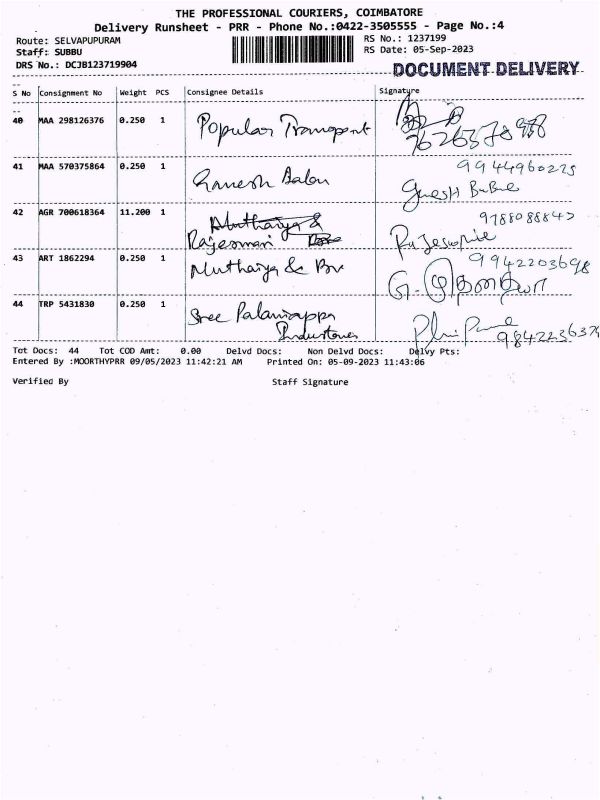 THE PROFESSIONAL COURIERS, COIMBATORE
Delivery Runsheet - PRR - Phone No.:0422-3505555 - Page No.:4
Route: SELVAPUPURAM
RS No.: 1237199
Staff: SUBBU
RS Date: 05-Sep-2023
DRS No.: DCJB123719904
DOCUMENT DELIVERY
S No Consignment No Weight PCS Consignee Details Signature
40 MAA 298126376 0.250 1 Popular Transport
41 MAA 570375864 0.250 1 Ganesh Balan 9944960225
42 AGR 700618364 11.200 1 Muthaiya & 9788088847
Rajeswari
43 ART 1862294 0.250 1 Muthaiya & Br 9942203698
44 TRP 5431830 0.250 1 Sree Palaniappa
Industries 9842236379
Tot Docs: 44 Tot COD Amt: 0.00 Delvd Docs: Non Delvd Docs: Delvy Pts:
Entered By :MOORTHYPRR 09/05/2023 11:42:21 AM Printed On: 05-09-2023 11:43:06
Verified By Staff Signature